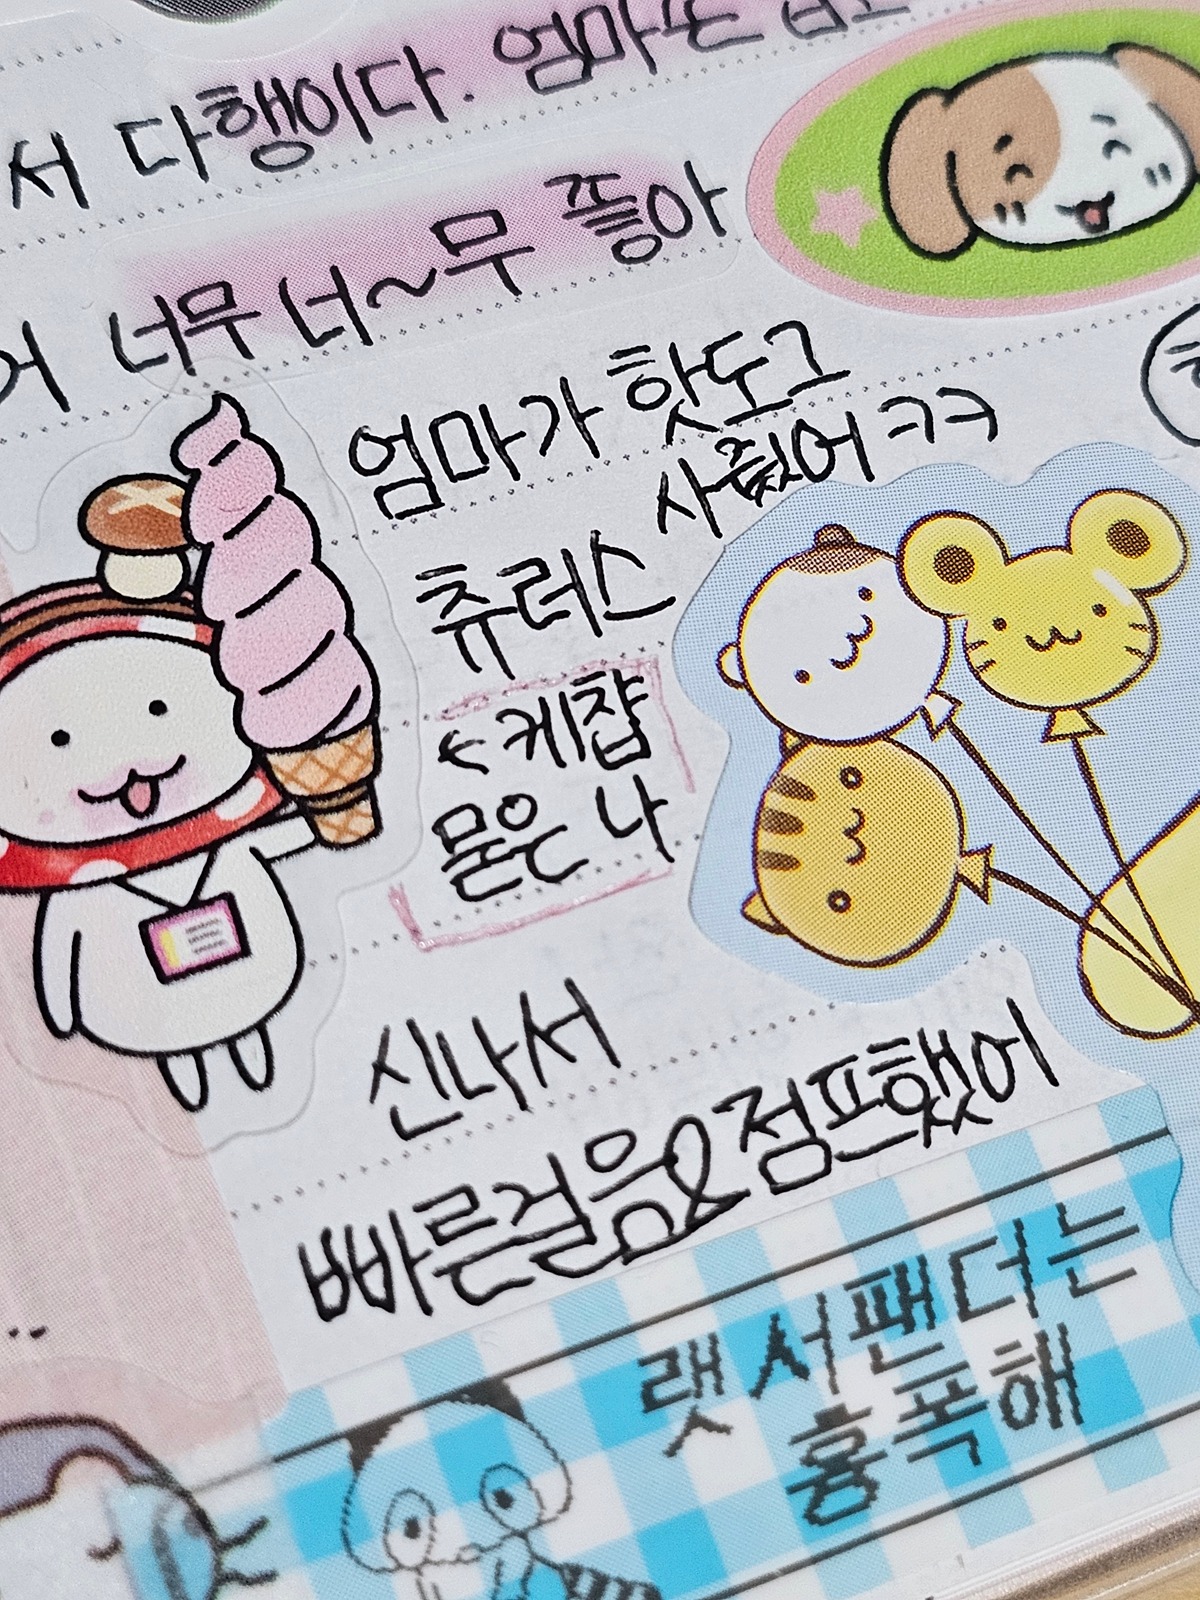 서 다행이다. 엄마는
어 너무 너~무 좋아
엄마가 핫도그
사줬어 ㅋㅋ
츄러스
← 케챱
묻은 나
신나서
빠른걸음&점프했어
랫서팬더는
흉폭해